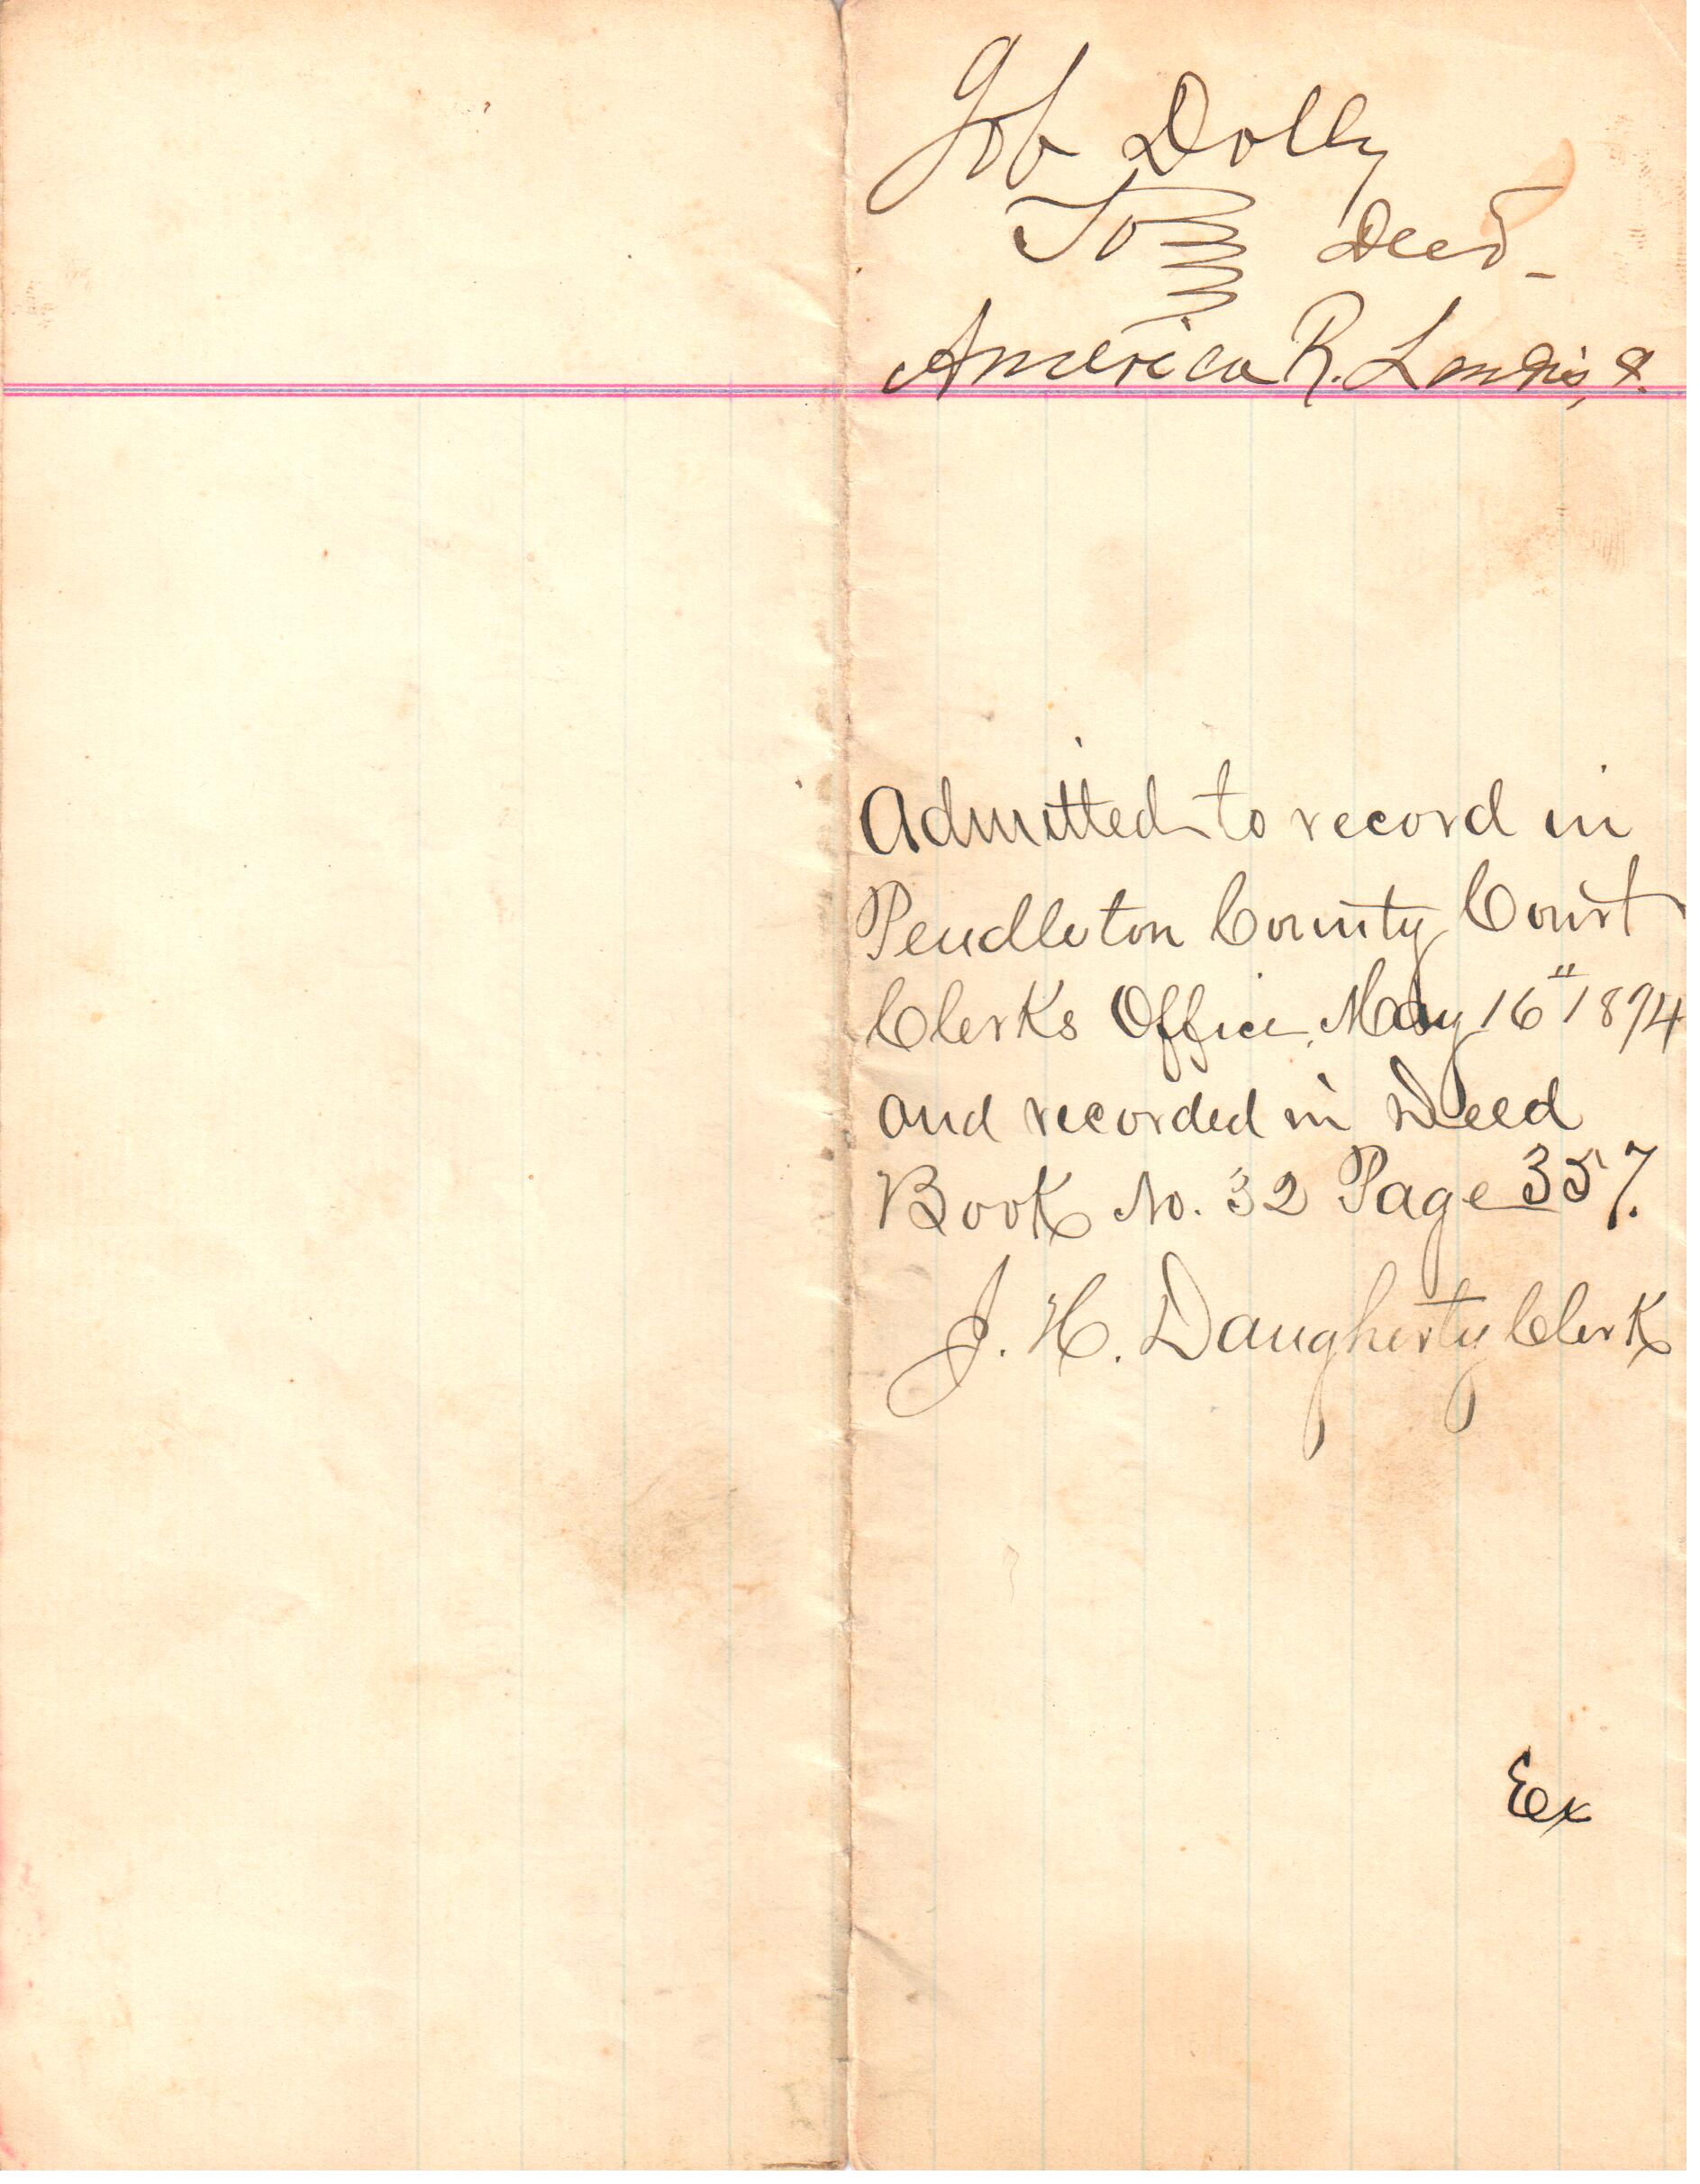 Job Dolly
To Deed-
America R. &
Admitted to record in
Pendleton County Court
Clerks Office, May 16" 1894
and recorded in Deed
Book No. 32 Page 357.
J. H. Daugherty Clerk
Ex